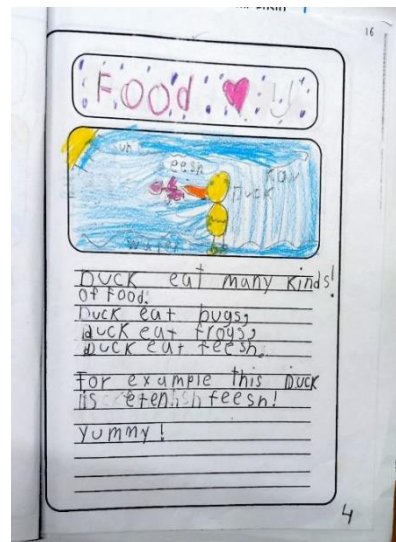 16
Food
Sun
eesh
Duck
water
Duck eat many kinds!
Of food.
Duck eat bugs,
duck eat frogs,
duck eat feesh.
For example this Duck
is feesh!
Yummy!
4